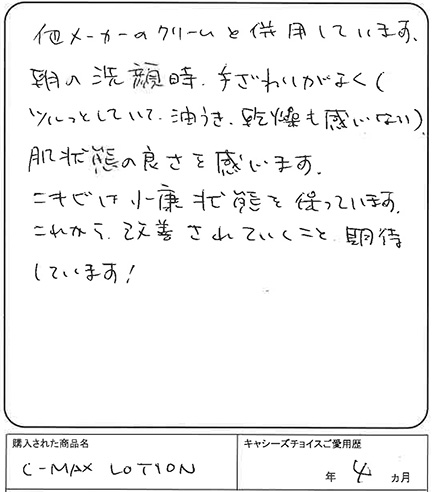 他メーカーのクリームと併用しています。
朝の洗顔時、手ざわりがよく(
ツルっとしていて、油うき、乾燥も感じない)、
肌状態の良さを感じます。
ニキビは小康状態を保っています。
これから、改善されていくこと、期待
しています!
購入された商品名
キャシーズチョイスご愛用歴
C-MAX LOTION
年 4 ヵ月